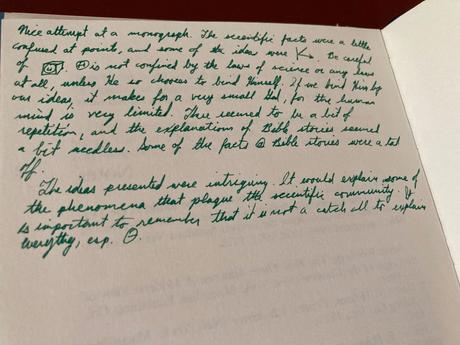 Nice attempt at a monograph. The scientific facts were a little
confused at points, and some of the ideas were. Be careful
of. Θ is not confined by the laws of science or any laws
at all, unless He so chooses to bind Himself. If we bind Him by
our ideas, it makes for a very small God, for the human
mind is very limited. There seemed to be a bit of
repetition, and the explanations of Bible stories seemed
a bit needless. Some of the facts @ Bible stories were a tad
off.
The ideas presented were intriguing. It would explain some of
the phenomena that plague the scientific community. It
is important to remember that it is not a catch all to explain
everything, esp. Θ.